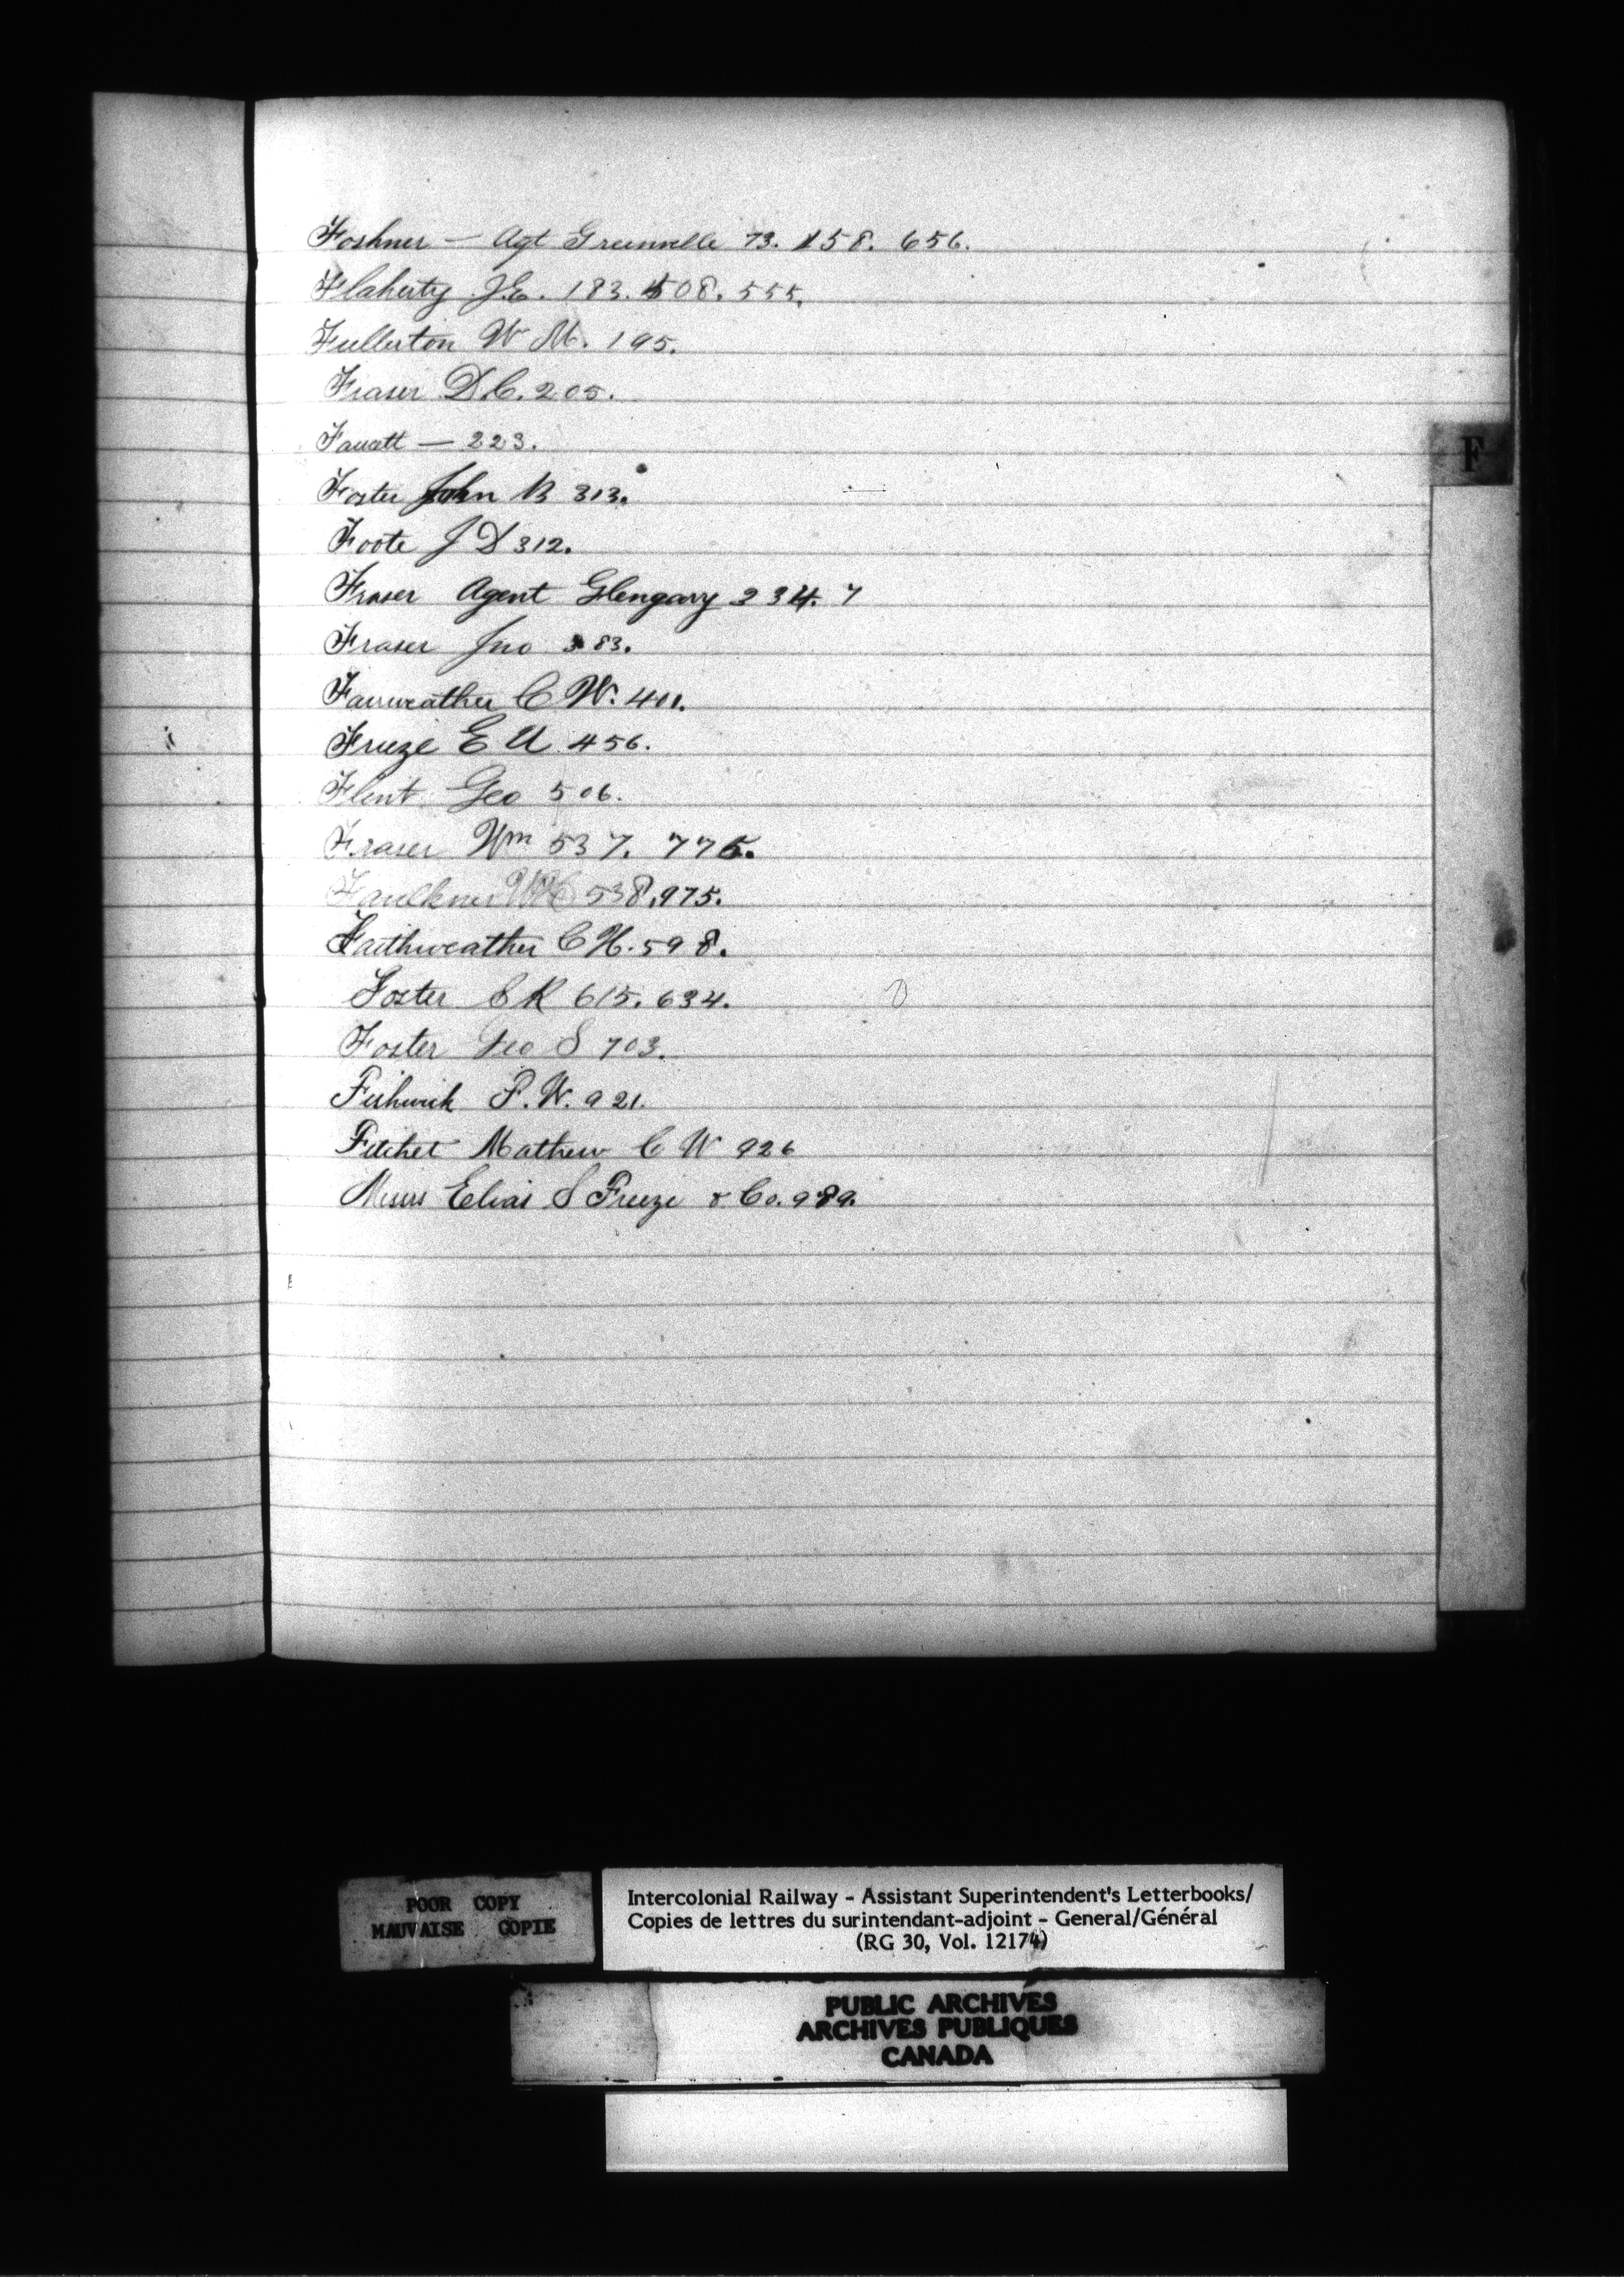 Foshner — Agt Greenville 73. 158. 656.
Flaherty J.E. 183. 508. 555.
Fullerton W M. 195.
Fraser D.C. 205.
Fawcett — 223.
Foster John B 313.
Foote J D 312.
Fraser Agent Glengary 334. 7
Fraser Jno 383.
Fairweather C W. 401.
Frieze E U 456.
Flint Geo 506.
Fraser Wm 537. 775.
Faulkner 538. 975.
Faithweather C H. 598.
Foster S R 615. 634.
Foster Geo S 703.
Fishwick F. W. 921.
Fitchet Mathew C W 926
Messrs Elias S Freeze & Co. 989.
F
POOR COPY
MAUVAISE COPIE
Intercolonial Railway - Assistant Superintendent's Letterbooks/
Copies de lettres du surintendant-adjoint - General/Général
(RG 30, Vol. 12174)
PUBLIC ARCHIVES
ARCHIVES PUBLIQUES
CANADA